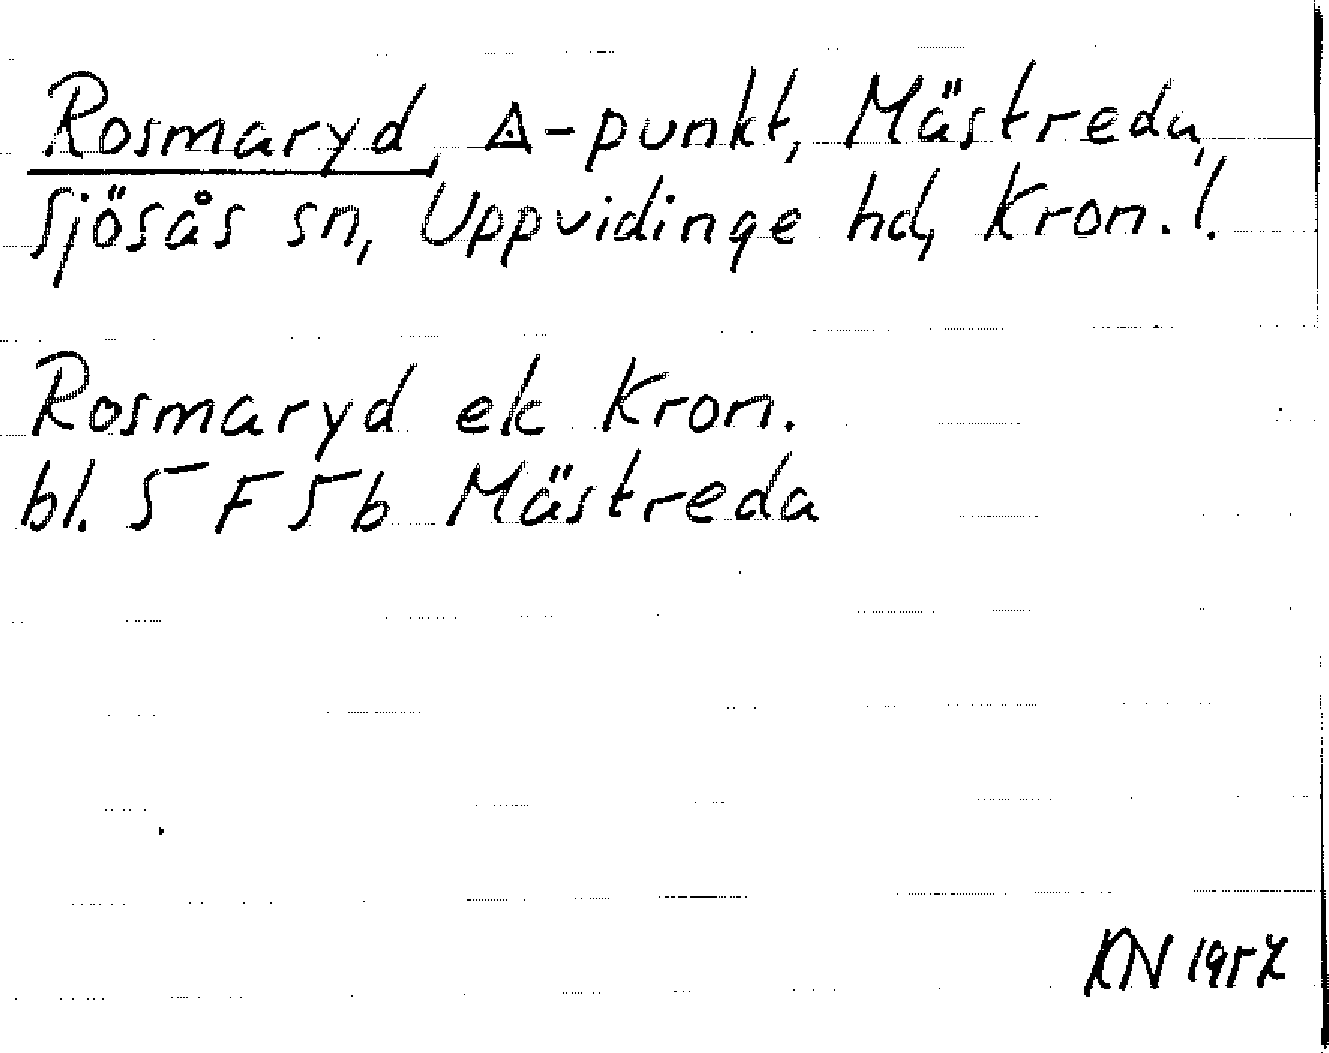 Rosmaryd, △-punkt, Mästreda,
Sjösås sn, Uppvidinge hd, Kron. l.
Rosmaryd ek Kron.
bl. 5 F 5b Mästreda
KN 1957